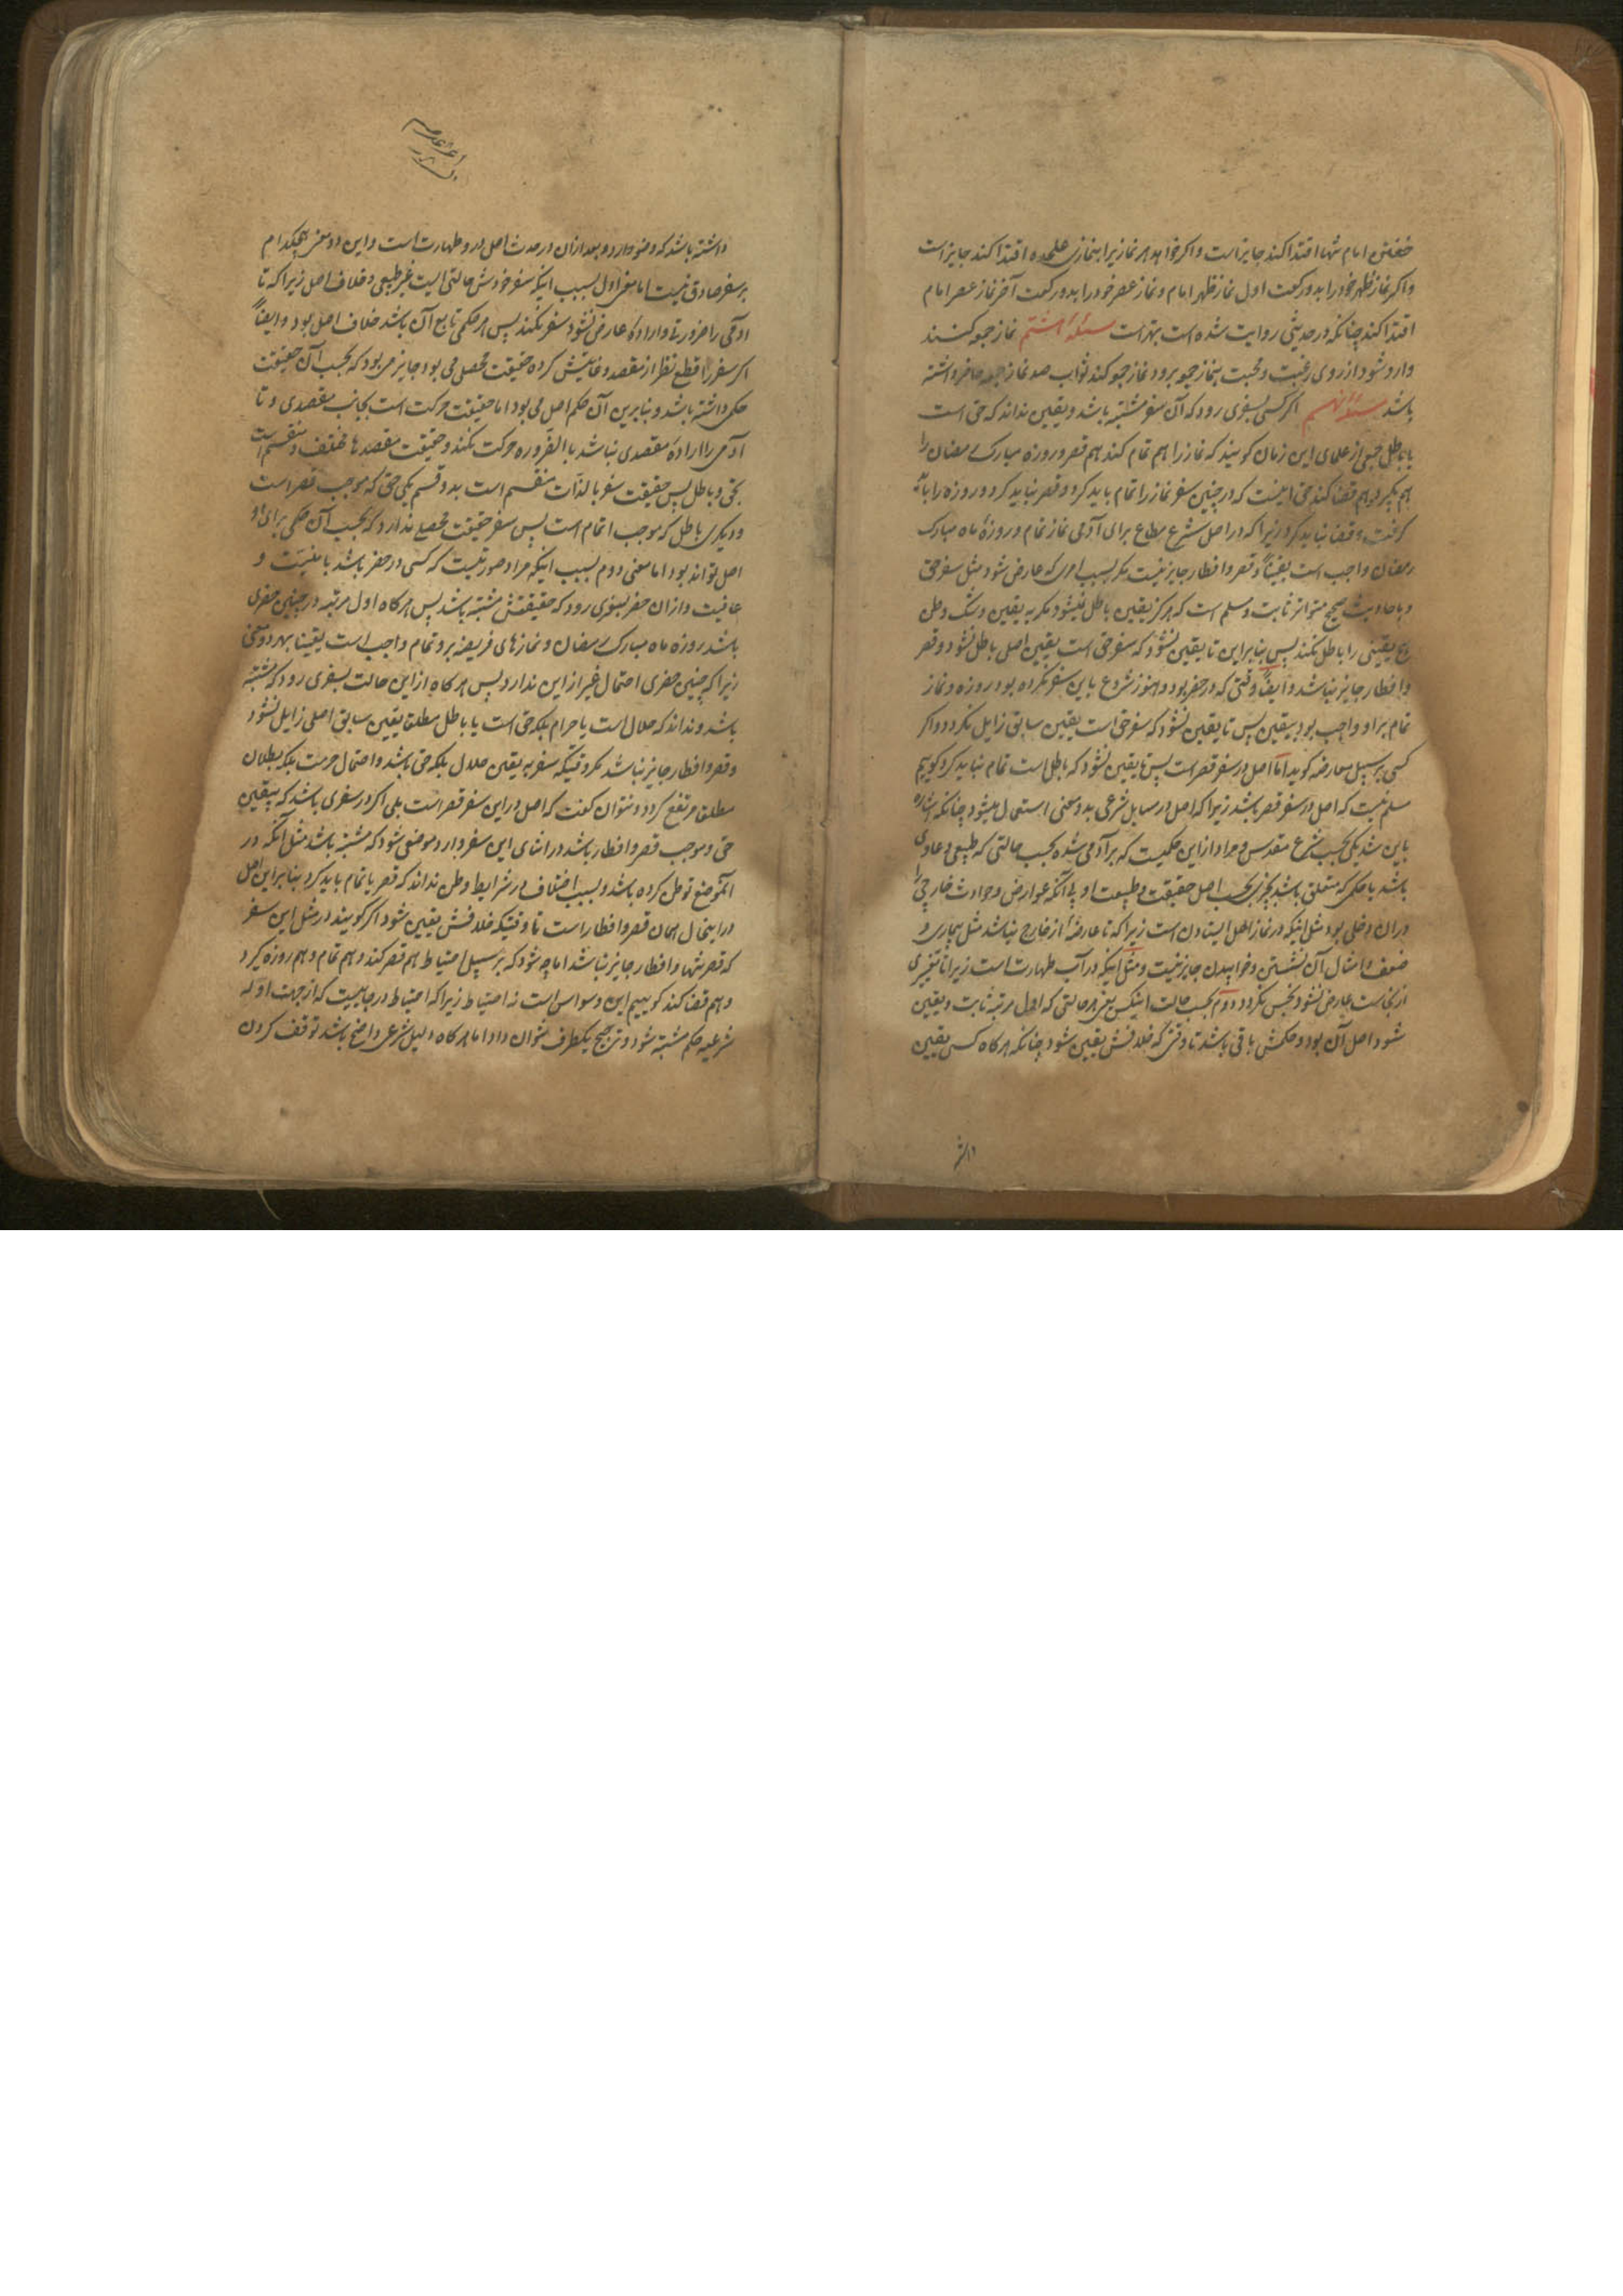 خفتن امام تنها اقتدا کند جایز است و اگر خواهد هر نمازیرا بنمازی علیحده اقتدا کند جایز است
و اگر نماز ظهر خود را بدو رکعت اول نماز ظهر امام و نماز عصر خود را بدو رکعت آخر نماز عصر امام
اقتدا کند چنانکه در حدیثی روایت شده است بهتر است مسئله هشتم نماز جمعه کسند
وارد شود از روی رغبت و محبت بنماز جمعه برود و نماز جمعه کند ثواب صد نماز جمعه حاضر داشته
باشد مسئله نهم اگر کسی بسفری رود که آن سفر مشتبه باشد و یقین نداند که حق است
یا باطل جمعی از علمای این زمان گویند که نماز را هم تمام کند هم قصر و روزه مبارک رمضان را
هم بگیرد و هم قضا کند حق اینست که در چنین سفر نماز را تمام باید کرد و قصر نباید کرد و روزه را باید
گرفت و قضا نباید کرد زیرا که در اصل شرع مطاع برای آدمی نماز تمام و روزهٔ ماه مبارک
رمضان واجب است یقیناً و قصر و افطار جایز نیست مگر بسبب امری که عارض شود مثل سفر حق
و باحادیث صحیح متواتر ثابت و مسلم است که هرگز یقین باطل نمیشود مگر به یقین و شک و ظن
هیچ یقینی را باطل نکند پس بنابراین تا یقین نشود که سفر حق است یقین اصل باطل نشود و قصر
و افطار جایز نباشد و ایضاً وقتی که در حضر بود و هنوز شروع باین سفر نکرده بود روزه و نماز
تمام بر او واجب بود بیقین پس تا یقین نشود که سفر حق است یقین سابق زایل نگردد و اگر
کسی بر سبیل معارضه گوید اما اصل در سفر قصر است پس تا یقین نشود که باطل است تمام نباید کرد گوییم
مسلم نیست که اصل در سفر قصر باشد زیرا که اصل در مسایل شرعی بدو معنی استعمال میشود چنانکه اشاره
باین شد یکی بحسب شرع مقدس و مراد از این حکمیست که بر آدمی شده بحسب حالتی که طبیعی و عادی
باشد یا حکمی که متعلق باشد بچیزی بحسب اصل حقیقت و طبیعت او بی آنکه عوارض و حوادث خارجی را
در آن دخلی بود مثل اینکه در نماز اصل ایستادن است زیرا که تا عارضهٔ از خارج نباشد مثل بیماری و
ضعف و امثال آن نشستن و خوابیدن جایز نیست و مثل اینکه در آب طهارت است زیرا تا تغییری
از نجاست عارض نشود نجس نگردد دوم بحسب حالت اینکس یعنی هر حالتی که اول مرتبه ثابت و یقین
شود اصل آن بود و حکمش باقی باشد تا وقتی که خلافش یقین شود چنانکه هرگاه کسی یقین
داشته
داشته باشد که وضو دارد و بعد از آن در حدث اصل در و طهارت است و این دو معنی هیچکدام
بر سفر صادق نیست اما معنی اول بسبب اینکه سفر خودش حالتی است غیر طبیعی و خلاف اصل زیرا که تا
آدمی را ضرورتی و ارادهٔ عارض نشود سفر نکند پس هر حکمی تابع آن باشد خلاف اصل بود و ایضاً
اگر سفر را قطع نظر از مقصد و غایتش کرده حقیقت محصل می بود جایز می بود که بحسب آن حقیقت
حکمی داشته باشد و بنابرین آن حکم اصل می بود اما حقیقت حرکت است بجانب مقصدی و تا
آدمی را ارادهٔ مقصدی نباشد بالضروره حرکت نکند و حقیقت مقصدها مختلف و منقسم است
بحق و باطل پس حقیقت سفر بالذات منقسم است بدو قسم یکی حق که موجب قصر است
و دیگری باطل که موجب اتمام است پس سفر حقیقت محصلی ندارد که بحسب آن حکمی برای او
اصل تواند بود اما معنی دوم بسبب اینکه مراد صورتیست که کسی در حضر باشد بامنیت و
عافیت و از آن حضر بسفری رود که حقیقتش مشتبه باشد پس هرگاه اول مرتبه در چنین حضری
باشد روزه ماه مبارک رمضان و نمازهای فریضه برو تمام واجب است یقینا بهر دو معنی
زیرا که چنین حضری احتمال غیر از این ندارد پس هرگاه از این حالت بسفری رود که مشتبه
باشد و نداند که حلال است یا حرام بلکه حق است یا باطل مطلقا یقین سابق اصلی زایل نشود
و قصر و افطار جایز نباشد مگر وقتیکه سفر به یقین حلال بلکه حق باشد و احتمال حرمت بلکه بطلان
مطلقا مرتفع گردد و نتوان گفت که اصل در این سفر قصر است بلی اگر در سفری باشد که بیقین
حق و موجب قصر و افطار باشد در اثنای این سفر وارد موضعی شود که مشتبه باشد مثل آنکه در
آنموضع توطن کرده باشد و بسبب اختلاف در شرایط وطن نداند که قصر یا تمام باید کرد بنابراین اصل
در اینحال همان قصر و افطار است تا وقتیکه خلافش یقین شود اگر گویند در مثل این سفر
که قصر تنها و افطار جایز نباشد اما چه شود که بر سبیل احتیاط هم قصر کند و هم تمام و هم روزه گیرد
و هم قضا کند گوییم این وسواس است نه احتیاط زیرا که احتیاط در جاییست که از جهت ادله
شرعیه حکم مشتبه شود و ترجیح یکطرف نتوان داد اما هرگاه دلیل شرعی واضح باشد توقف کردن